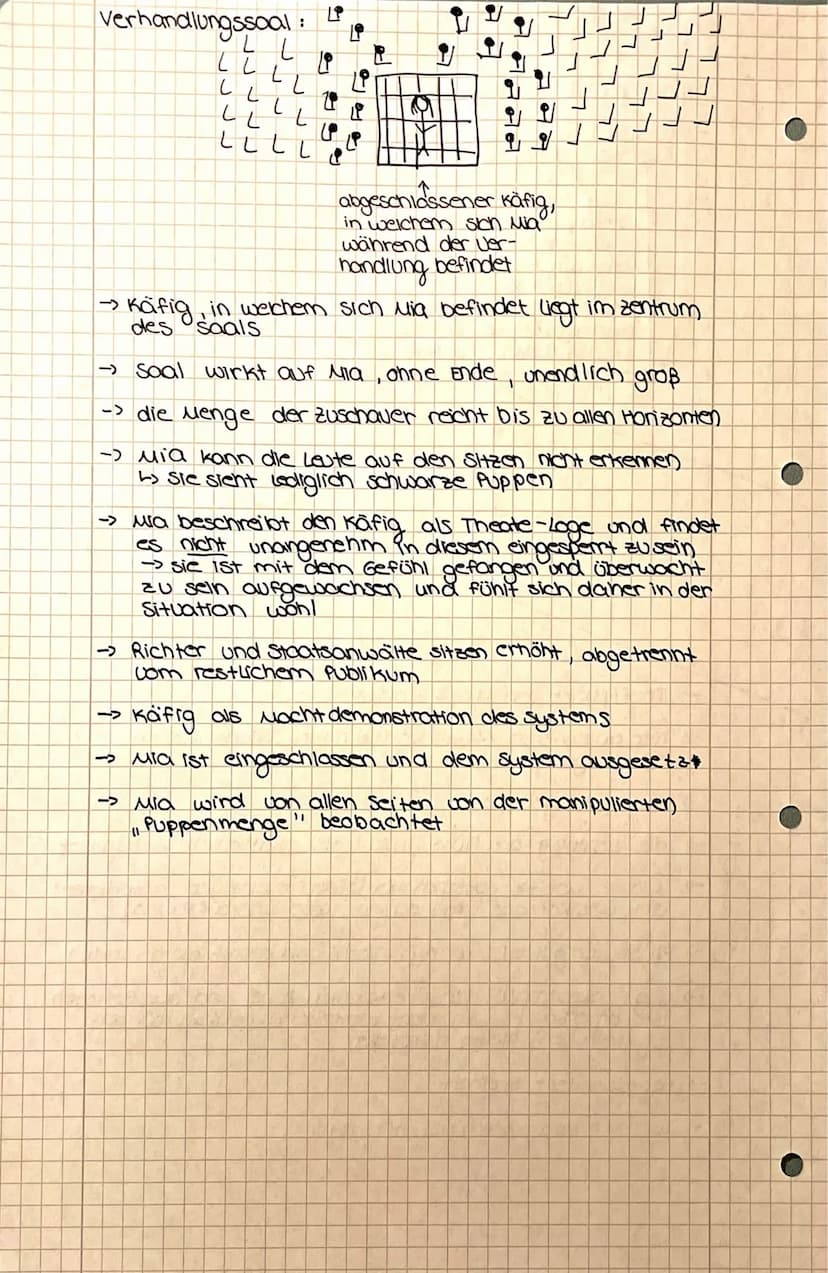 Verhandlungssaal:
↑
abgeschlossener Käfig,
in welchem sich Mia
während der Ver-
handlung befindet
→ Käfig, in welchem sich Mia befindet liegt im Zentrum
des Saals
→ Saal wirkt auf Mia, ohne Ende, unendlich groß
-> die Menge der Zuschauer reicht bis zu allen Horizonten
-> Mia kann die Leute auf den Sitzen nicht erkennen
↳ Sie sieht lediglich schwarze Puppen
-> Mia beschreibt den Käfig als Theate-Loge und findet
es nicht unangenehm in diesem eingesperrt zu sein
→ sie ist mit dem Gefühl gefangen und überwacht
zu sein aufgewachsen und fühlt sich daher in der
Situation wohl
-> Richter und Staatsanwälte sitzen erhöht, abgetrennt
vom restlichem Publikum
-> Käfig als Machtdemonstration des Systems
-> Mia ist eingeschlossen und dem System ausgesetzt
-> Mia wird von allen Seiten von der manipulierten
„Puppenmenge" beobachtet